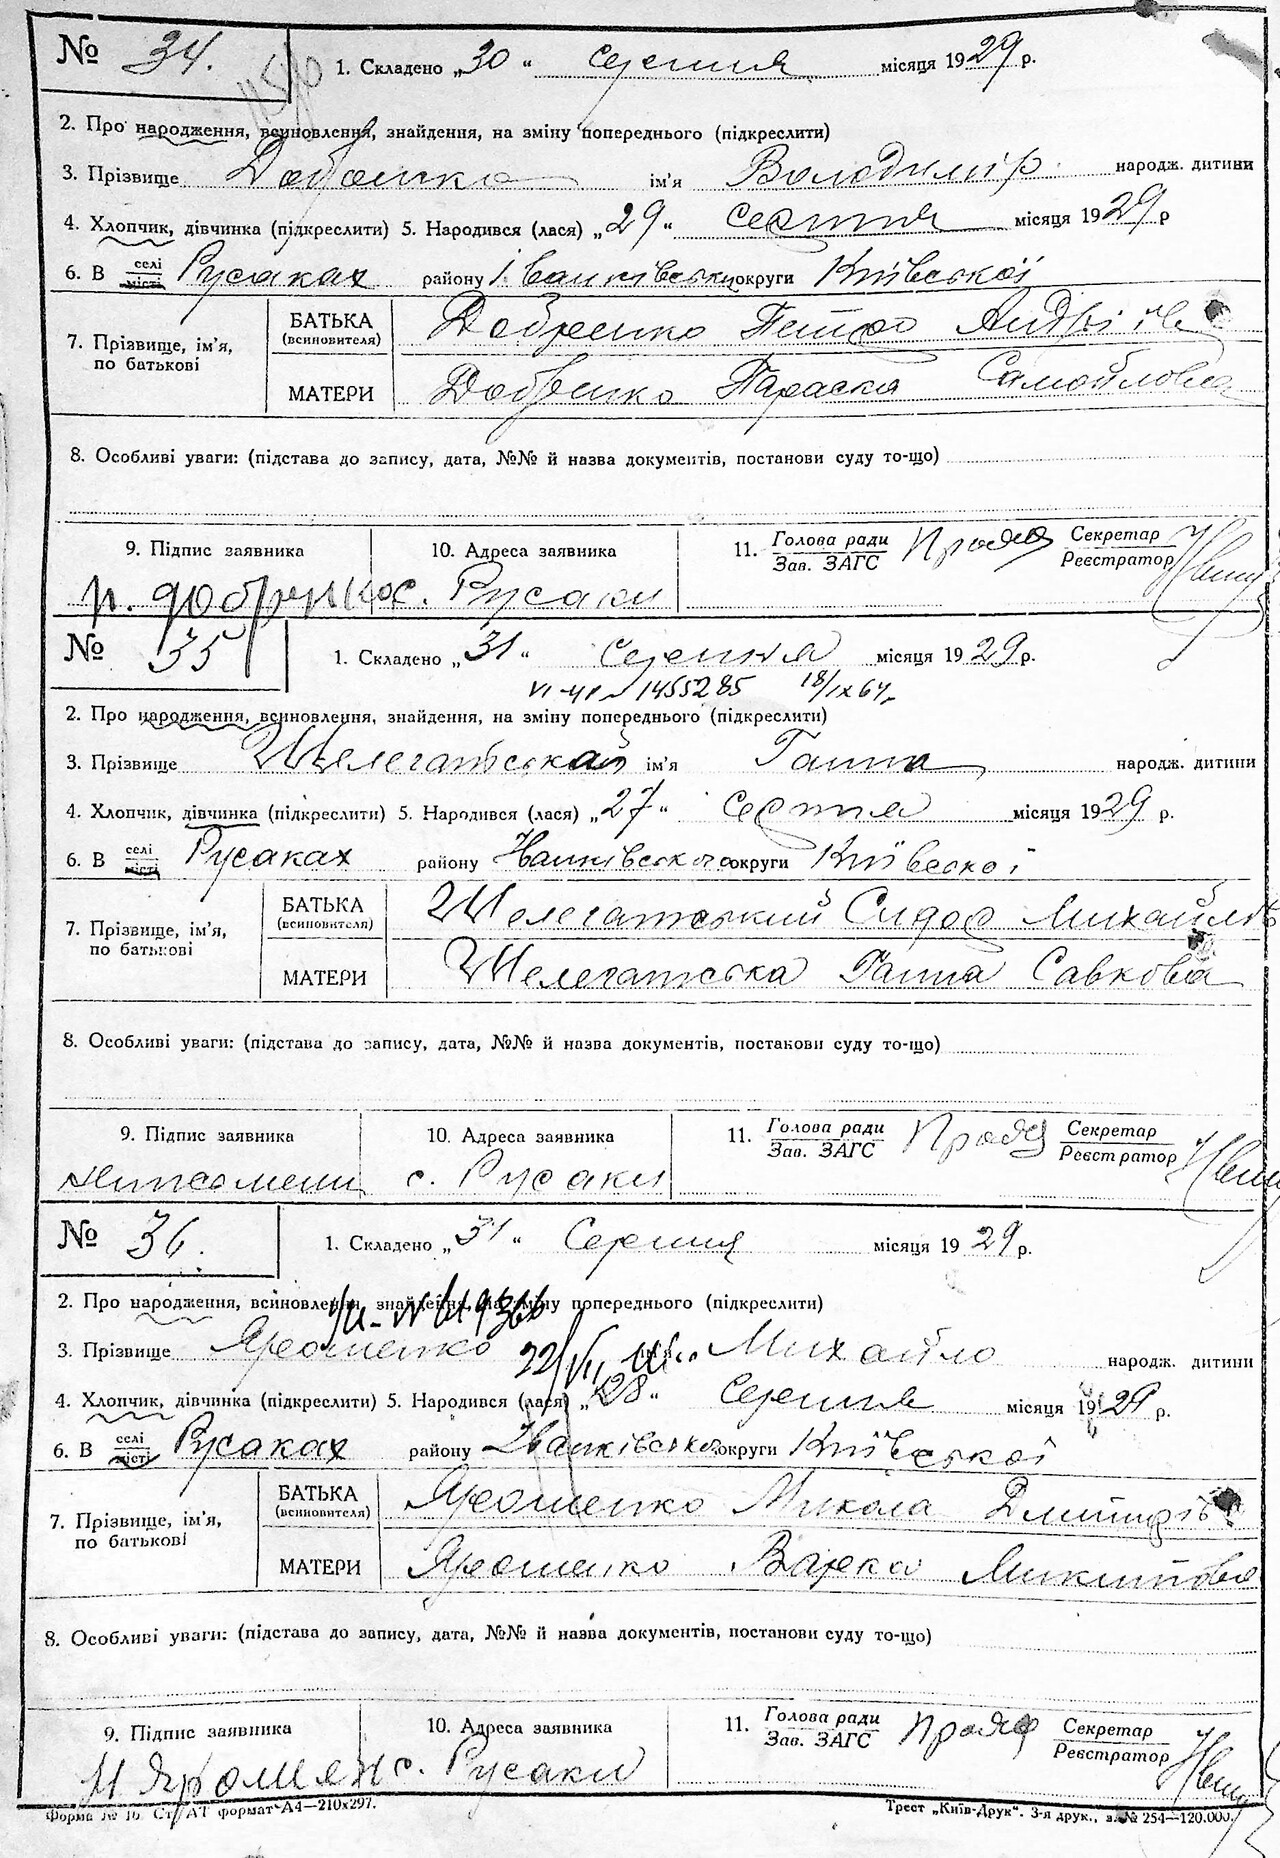 № 34. 1. Складено „30" серпня місяця 1929 р.
2. Про народження, всиновлення, знайдення, на зміну попереднього (підкреслити)
3. Прізвище ім'я Володимір народж. дитини
4. Хлопчик, дівчинка (підкреслити) 5. Народився (лася) „29" серпня місяця 1929 р
6. В селі місті Русаках району Іванківськ округи Київської
7. Прізвище, ім'я, по батькові
БАТЬКА (всиновителя) Добренко Петро Андрійов
МАТЕРИ Добренко Параска Самойловна
8. Особливі уваги: (підстава до запису, дата, №№ й назва документів, постанови суду то-що)
9. Підпис заявника 10. Адреса заявника 11. Голова ради Зав. ЗАГС Секретар Реєстратор
п. добренко с. Русаки
№ 35 1. Складено „31" серпня місяця 1929 р.
1455285 18/IX 64
2. Про народження, всиновлення, знайдення, на зміну попереднього (підкреслити)
3. Прізвище Шелегатська ім'я Ганна народж. дитини
4. Хлопчик, дівчинка (підкреслити) 5. Народився (лася) „27" серпня місяця 1929 р.
6. В селі місті Русаках району Іванківського округи Київської
7. Прізвище, ім'я, по батькові
БАТЬКА (всиновителя) Шелегатський Сидор Михайлів
МАТЕРИ Шелегатська Ганна Савкова
8. Особливі уваги: (підстава до запису, дата, №№ й назва документів, постанови суду то-що)
9. Підпис заявника 10. Адреса заявника 11. Голова ради Зав. ЗАГС Секретар Реєстратор
неписьмени с. Русаки
№ 36. 1. Складено „31" Серпня місяця 1929 р.
2. Про народження, всиновлення, знайдення, на зміну попереднього (підкреслити)
3. Прізвище Ярошенко Михайло народж. дитини
4. Хлопчик, дівчинка (підкреслити) 5. Народився (лася) „28" серпня місяця 1929 р.
6. В селі місті Русаках району Іванківсько округи Київської
7. Прізвище, ім'я, по батькові
БАТЬКА (всиновителя) Ярошенко Микола Дмитрів
МАТЕРИ Ярошенко Варка Микитова
8. Особливі уваги: (підстава до запису, дата, №№ й назва документів, постанови суду то-що)
9. Підпис заявника 10. Адреса заявника 11. Голова ради Зав. ЗАГС Секретар Реєстратор
М Ярошен с. Русаки
Форма № 16. Ст АТ формат А4—210х297. Трест „Київ-Друк". 3-я друк., з. № 254—120.000.